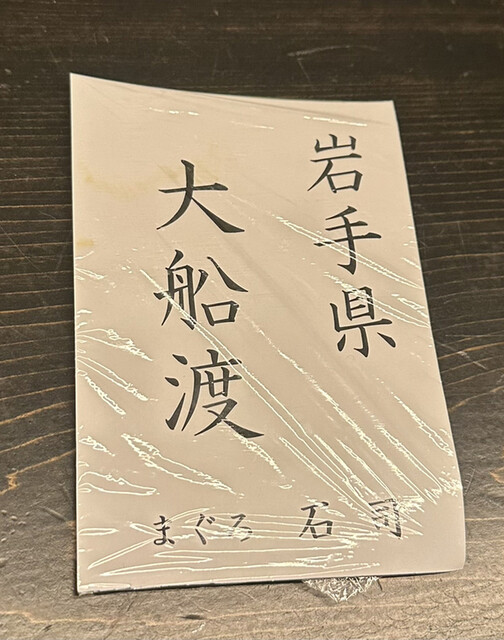 岩手県
大船渡
まぐろ 石司